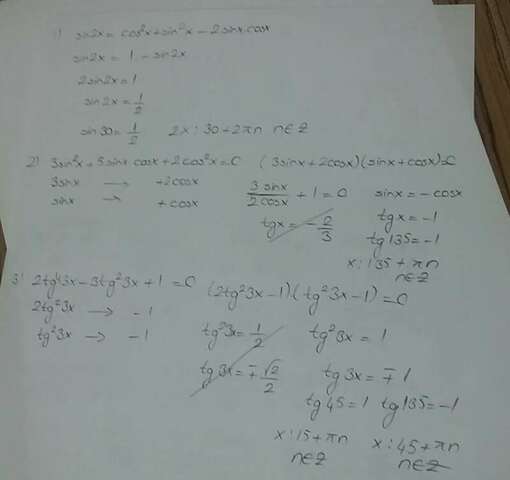 1) sin2x = cos²x + sin²x - 2sinx.cosx
sin2x = 1 - sin2x
2sin2x = 1
sin2x = 1/2
sin30 = 1/2    2x : 30 + 2πn n∈Z
2) 3sin²x + 5sinx cosx + 2cos²x = 0    (3sinx + 2cosx)(sinx + cosx) = 0
3sinx → +2cosx    3sinx/2cosx + 1 = 0    sinx = -cosx
sinx → +cosx    tgx = -2/3    tgx = -1
tg135 = -1
x : 135 + πn
n∈Z
3) 2tg⁴3x - 3tg²3x + 1 = 0    (2tg²3x - 1)(tg²3x - 1) = 0
2tg²3x → -1
tg²3x → -1    tg²3x = 1/2    tg²3x = 1
tg3x = ∓√2/2    tg3x = ∓1
tg45 = 1    tg135 = -1
x : 15 + πn    x : 45 + πn
n∈Z    n∈Z